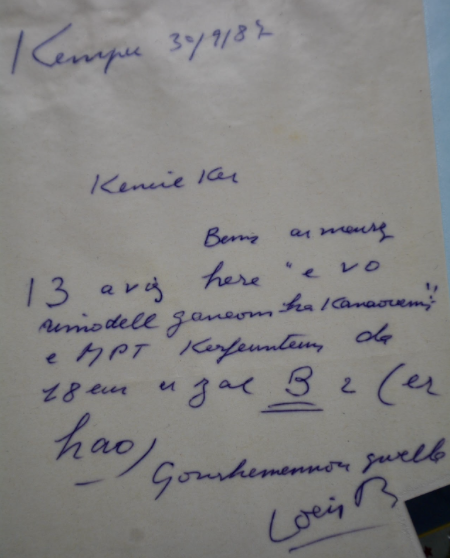 Kemper 30/9/87
Kenvel Ker
Bemz ar meurz
13 a viz here "e vo
rimodell ganeom
e MPT Kerfeunteun da
18 eur e zal B 2 (er
hao)
Gourhemennou gwella
Loeiz B